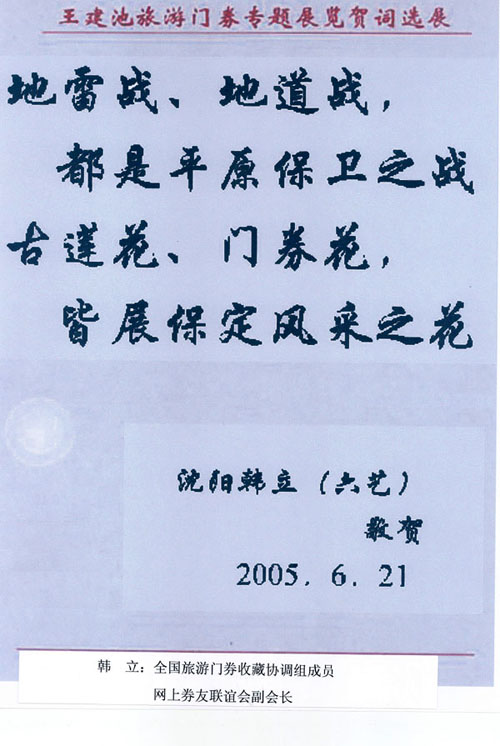 王建池旅游门券专题展览贺词选展
地雷战、地道战，
都是平原保卫之战
古莲花、门券花，
皆展保定风采之花
沈阳韩立（六艺）
敬贺
2005. 6. 21
韩　立：全国旅游门券收藏协调组成员
网上券友联谊会副会长